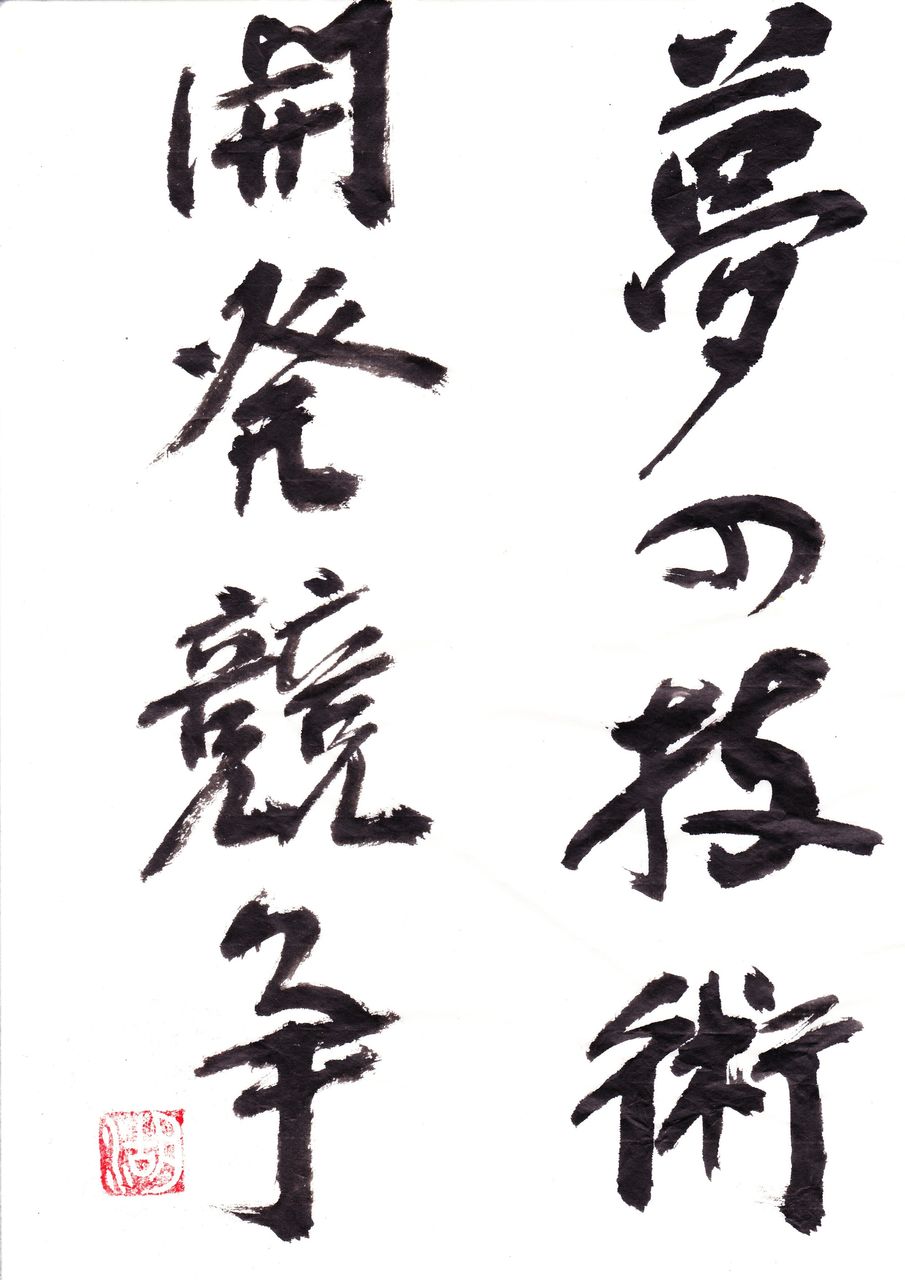 夢の技術
開発競争
湖